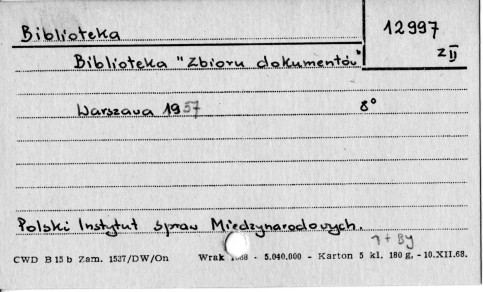 Biblioteka
12997
z II
Biblioteka "Zbioru dokumentów"
Warszawa 1957 8°
Polski Instytut Spraw Międzynarodowych.
1 + By
CWD B 15 b Zam. 1527/DW/On Wrak 1968 - 5.040.000 - Karton 5 kl. 180 g. - 10.XII.68.